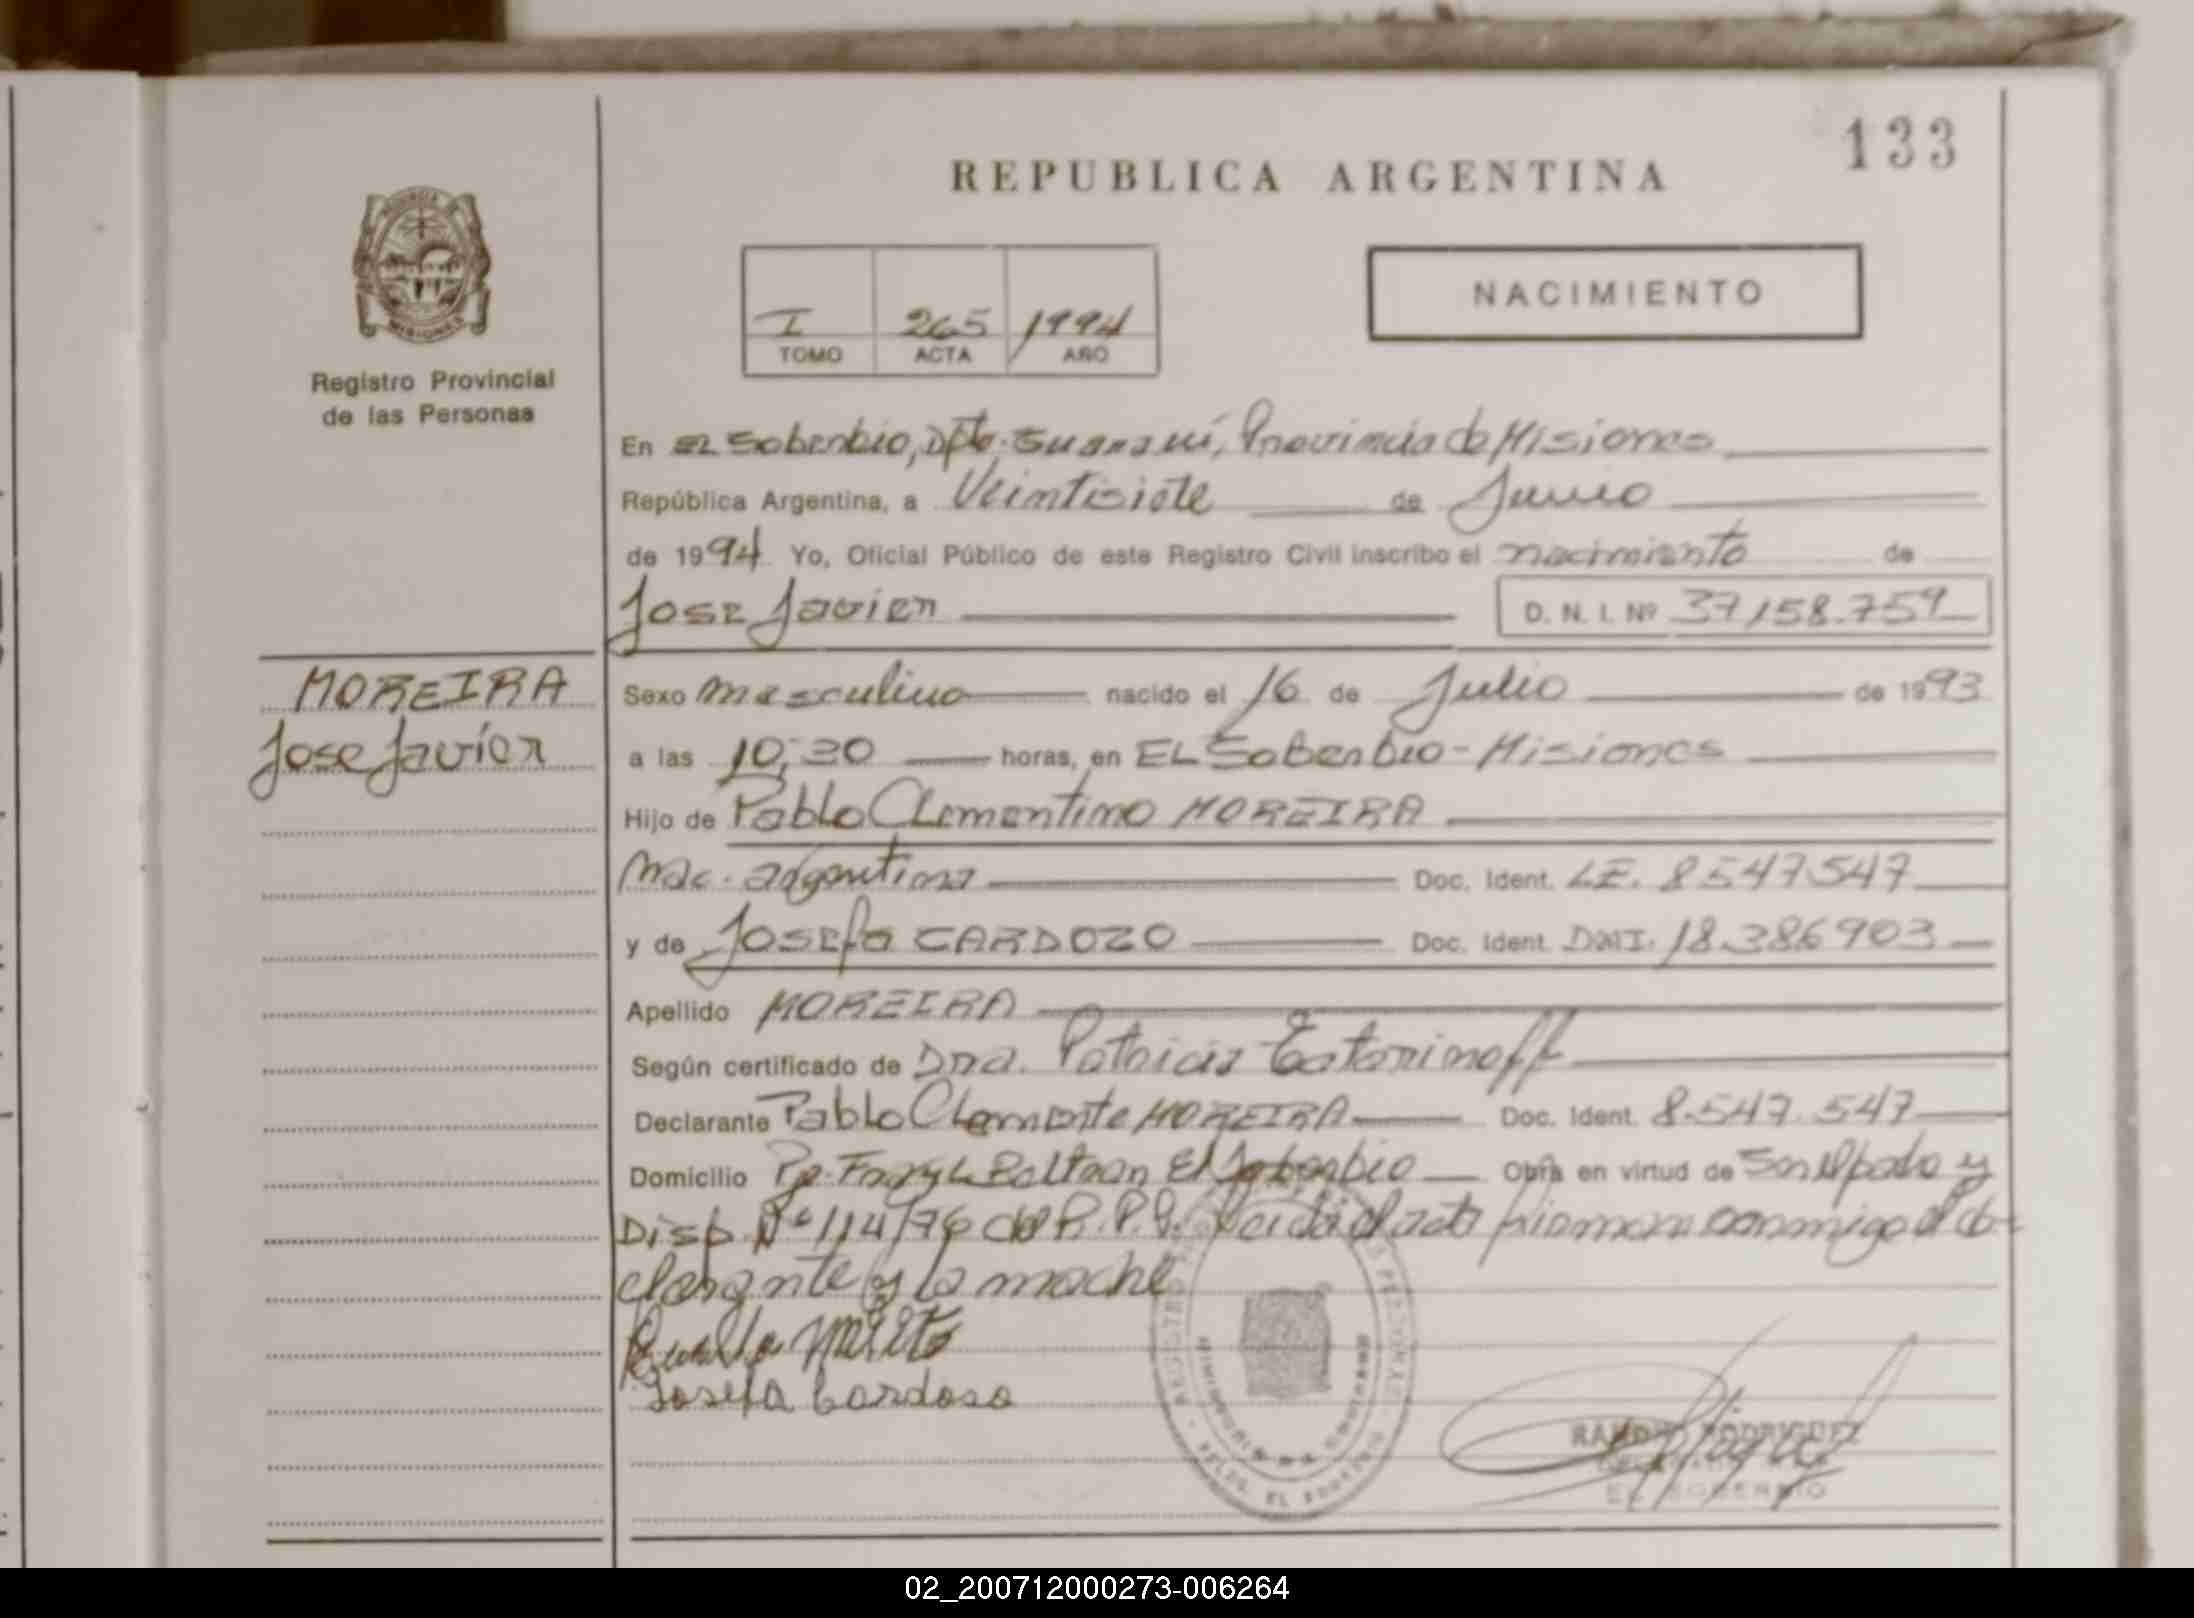 133
REPUBLICA ARGENTINA
NACIMIENTO
I 265 1994
TOMO ACTA AÑO
MISIONES
Registro Provincial
de las Personas
En EL Soberbio, Dpto. Guaraní, Provincia de Misiones
República Argentina, a Veintisiete de Junio
de 1994 Yo, Oficial Público de este Registro Civil inscribo el nacimiento de
Jose Javier D. N. I. Nº 37,158.759
MOREIRA
Jose Javier
Sexo masculino nacido el 16 de Julio de 1993
a las 10,30 horas, en EL Soberbio - Misiones
Hijo de Pablo Clementino MOREIRA
Nac. argentina Doc. Ident. LE. 8547547
y de Josefa CARDOZO Doc. Ident. DNI. 18.386903
Apellido MOREIRA
Según certificado de Dra. Patricia
Declarante Pablo Clemente MOREIRA Doc. Ident. 8.547.547
Domicilio Beltran El Soberbio Obra en virtud de
Disp. Nº 114/76 del R.P.P. Leida el acta firman conmigo el de-
clarante y la madre
Josefa Cardoso
REGISTRO PERSONAS
EL SOBERBIO
RAMON RODRIGUEZ
EL SOBERBIO
02_200712000273-006264